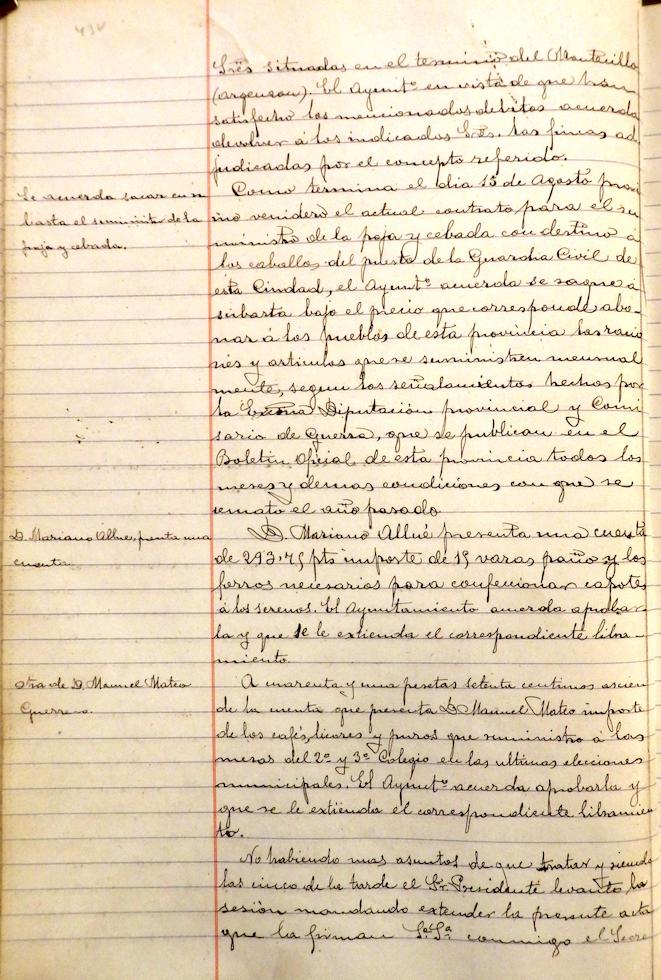 Sres situadas en el termino del Montecillo
(Argensou). El Aymtº en vista de que han
satisfecho los mencionados debitos acuerda
devolver á los indicados Sres. las fincas ad
judicadas por el concepto referido.
Se acuerda sacar en su
basta el suministro de la
paja y cebada.
Como termina el dia 15 de Agosto proxi
mo venidero el actual contrato para el su
ministro de la paja y cebada con destino á
los caballos del puesto de la Guardia Civil de
esta Ciudad, el Aymtº acuerda se saque á
subasta bajo el precio que corresponde abo-
nar á los pueblos de esta provincia las racio
nes y articulos que se suministren mensual
mente, segun los señalamientos hechos por
la Excma Diputación provincial y Comi
sario de Guerra, que se publican en el
Boletin Oficial de esta provincia todos los
meses y demas condiciones con que se
remato el año pasado
D. Mariano Allue, prenta una
cuenta
D. Mariano Allué presenta una cuenta
de 293'75 pts importe de 19 varas paño y los
forros necesarios para confeccionar capotes
á los serenos. El Ayuntamiento acuerda aprobar
la y que se le extienda el correspondiente libra-
miento.
otra de D. Manuel Mateo
Guerrero.
A cuarenta y una pesetas setenta centimos ascien
de la cuenta que presenta D. Manuel Mateo importe
de los cafés, licores y puros que suministro á las
mesas del 2º y 3º Colegio en las ultimas elecciones
municipales. El Aymtº acuerda aprobarla y
que se le extienda el correspondiente libramien
to.
No habiendo mas asuntos de que tratar y siendo
las cinco de la tarde el Sr. Presidente levanto la
sesión mandando extender la presente acta
que la firman S.ª S.ª conmigo el Secre